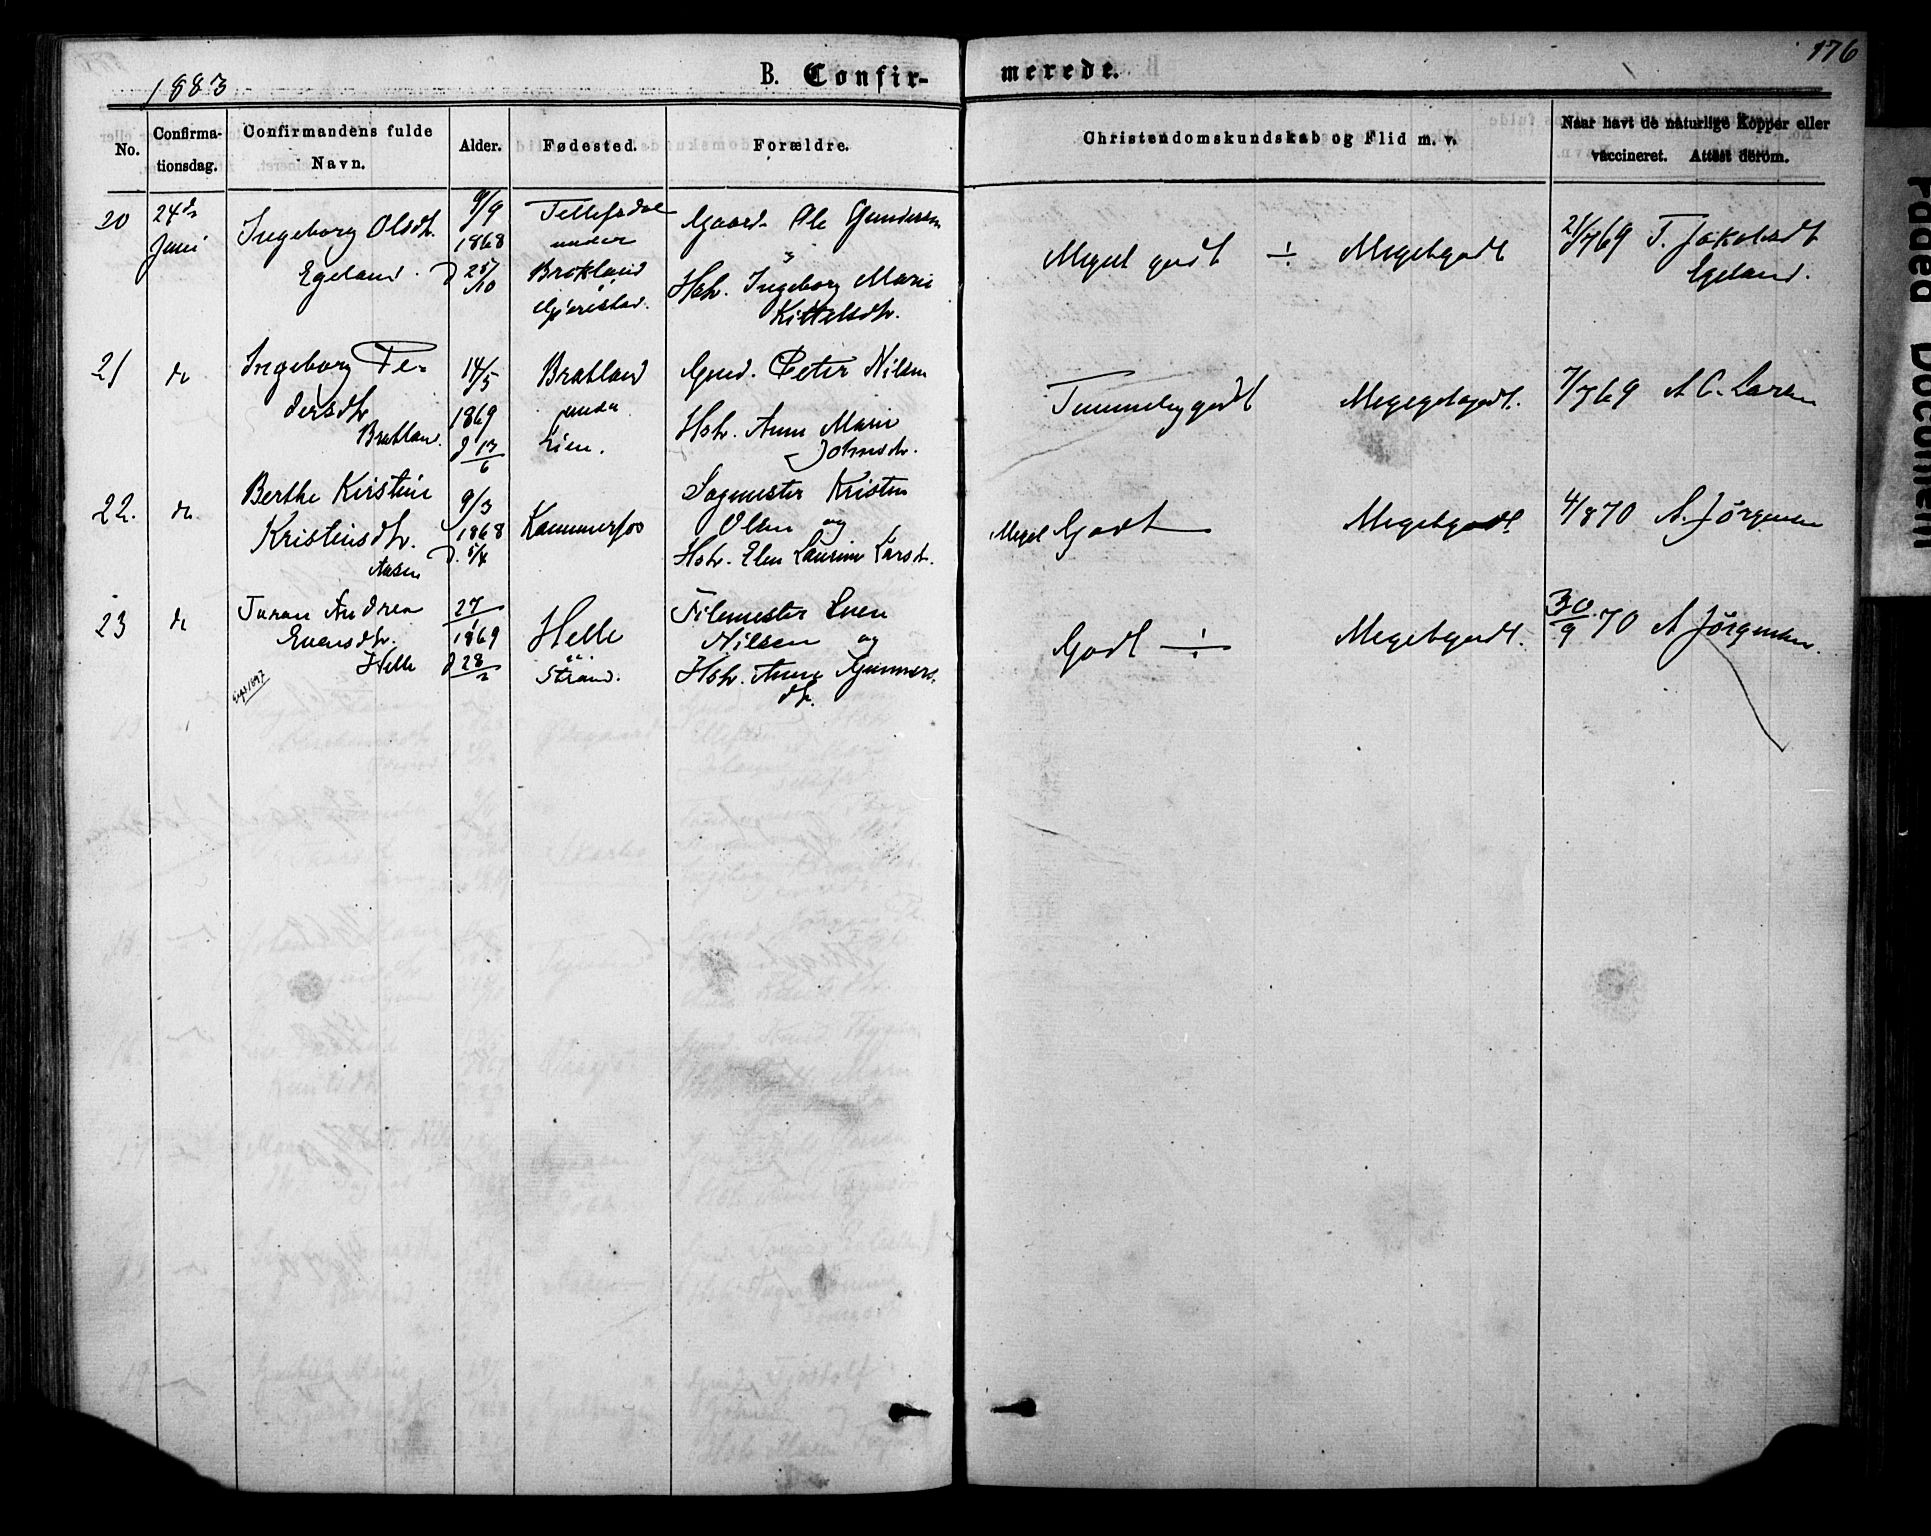 176
1883
B. Confir- merede.
No.
Confirma-
tionsdag.
Confirmandens fulde
Navn.
Alder.
Fødested.
Forældre.
Christendomskundskab og Flid m. v.
Naar havt de naturlige Kopper eller
vaccineret. Attest derom.
20
24de
Juni
Ingeborg Olsdtr.
Egeland.
9/9
1868
D 25/10
Tellefsdal
under
Brokland
Gjerestad.
Gaard. Ole Gundersen
Hst. Ingeborg Marie
Kittelsdtr.
Meget godt ÷ Megetgodt
21/7 69 T. Jakobsdt
Egeland.
21
do
Ingeborg Pe-
dersdtr
Bratland.
14/5
1869
D 13/6
Bratland
under
Lien.
Gmd. Peter Nilsen
Hstr. Anne Marie
Johnsdtr.
Temmeligodt Megetgodt.
7/7 69 A C. Larsen
22.
do.
Berthe Kirstine
Kristensdtr.
Aasen
9/3
1868
D. 5/4
Kammerfos
Sagmester Kristen
Olsen og
Hstr. Elen Laurine Larsdtr.
Meget Godt Megetgodt
4/8 70 A. Jørgensen
23
do
Juran Andrea
Evensdtr.
Helle
27/1
1869
D 28/2
Helle
Strand.
Filemester Even
Nilsen og
Hstr. Anne Gunners-
dtr.
Godt ÷ Megetgodt.
30/9 70 A Jørgensen
Faded Document